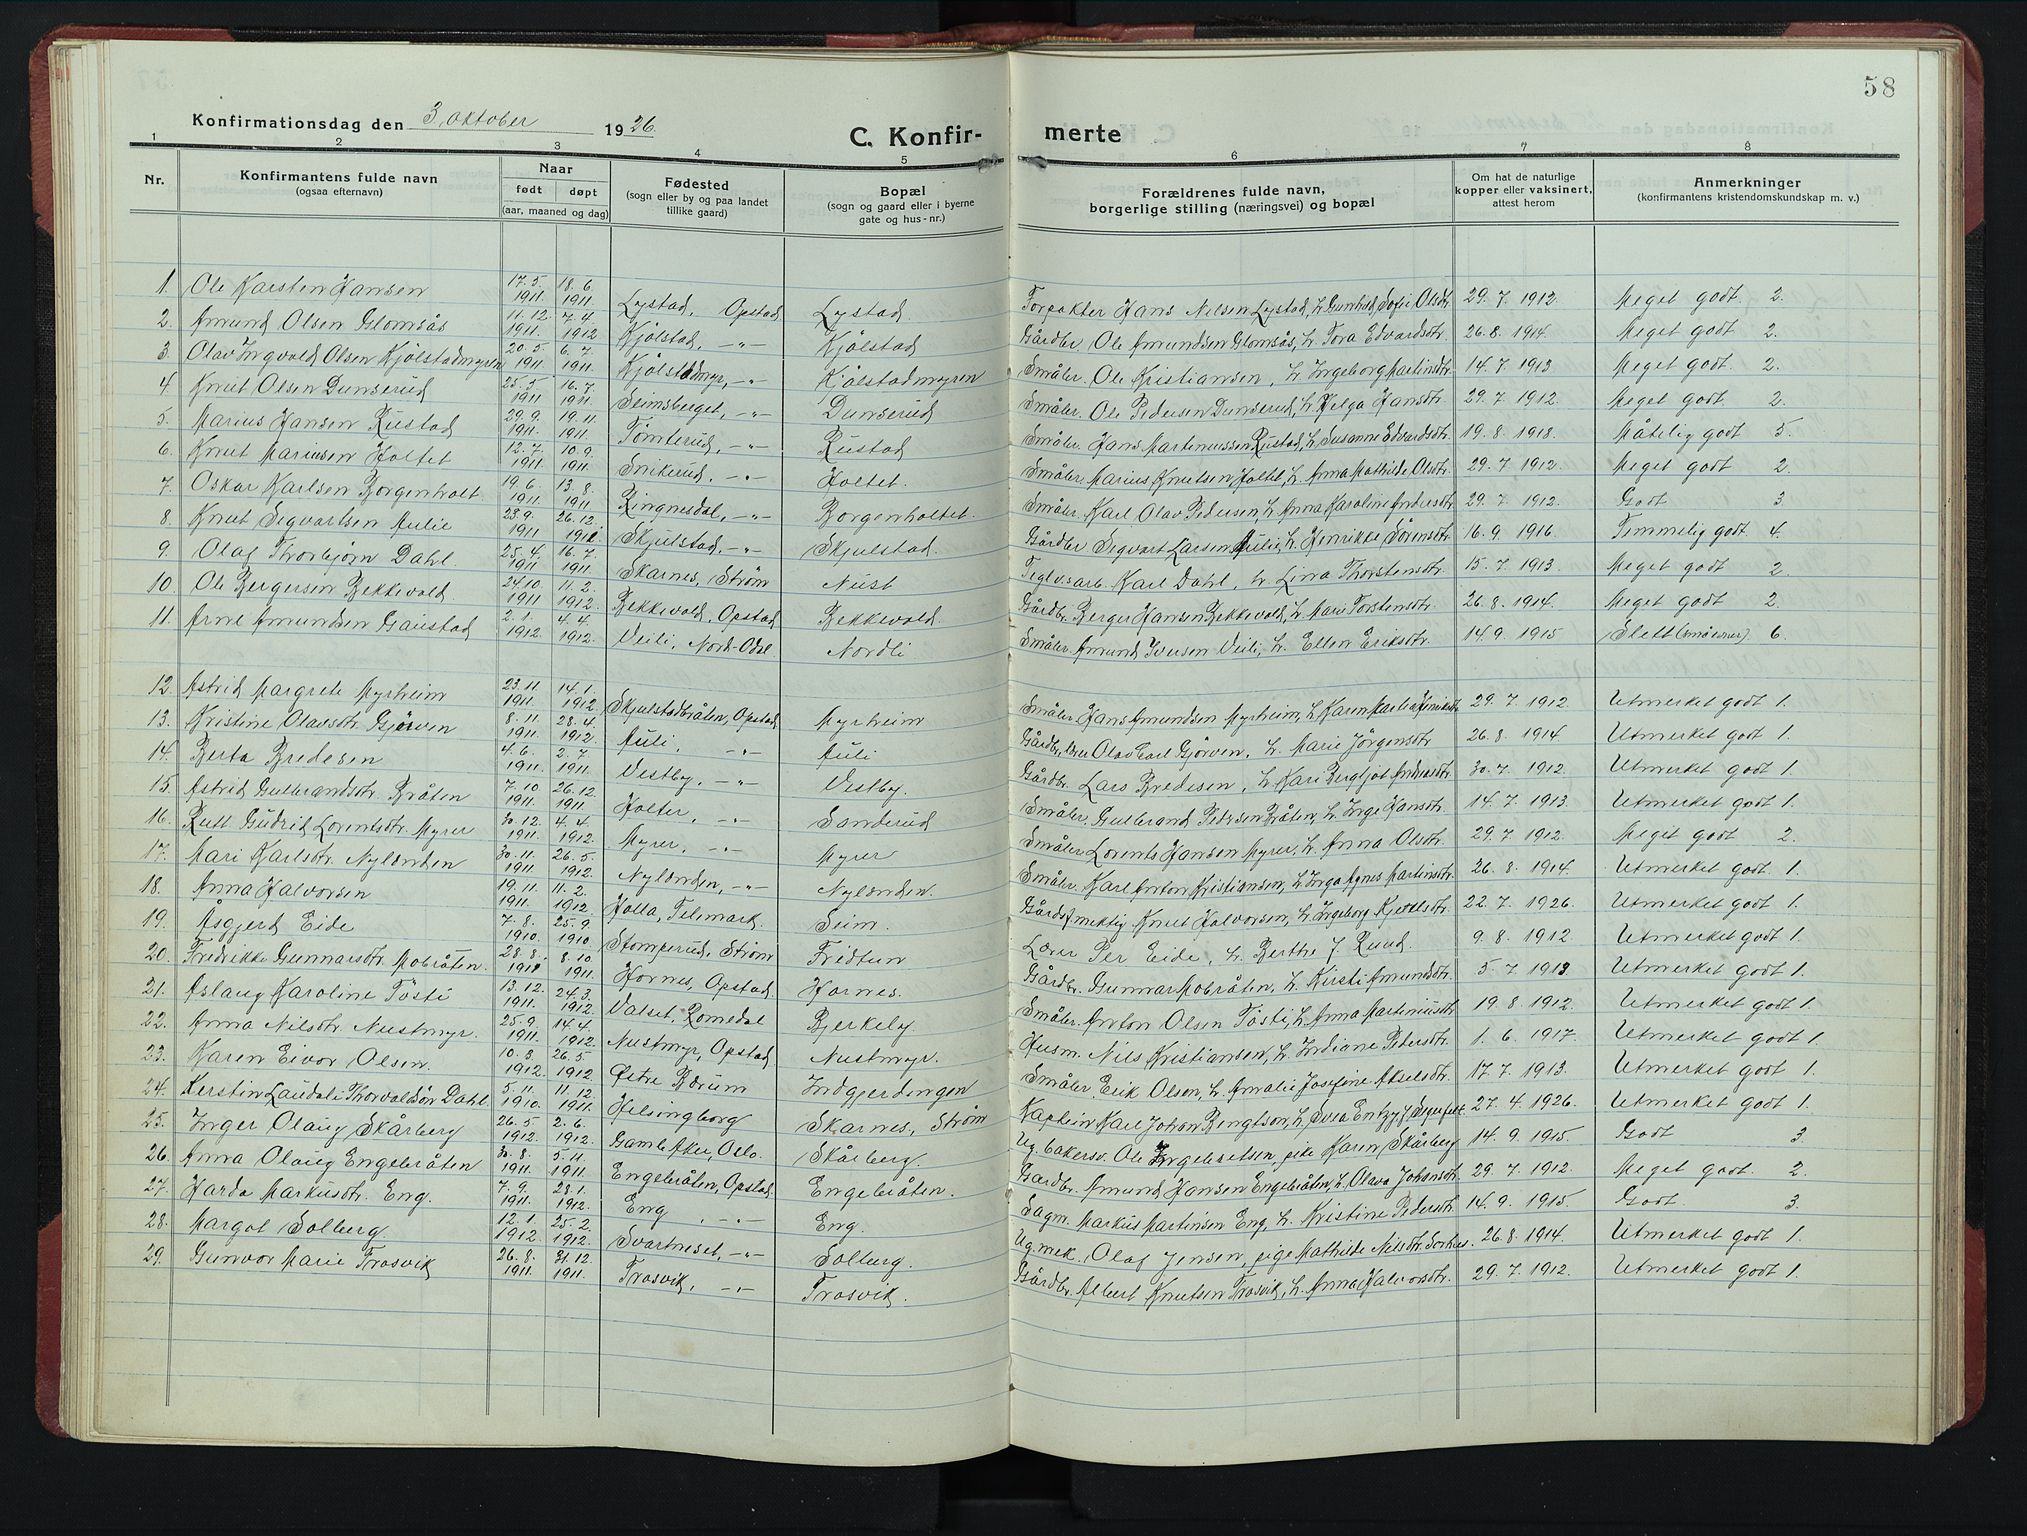 58
Konfirmationsdag den 3. oktober 1926.
C. Konfir-
merte
1 2 3 4 5 6 7 8
Nr.
Konfirmantens fulde navn
(ogsaa efternavn)
Naar
født døpt
(aar, maaned og dag)
Fødested
(sogn eller by og paa landet
tillike gaard)
Bopæl
(sogn og gaard eller i byerne
gate og hus-nr.)
Forældrenes fulde navn,
borgerlige stilling (næringsvei) og bopæl
Om hat de naturlige
kopper eller vaksinert,
attest herom
Anmerkninger
(konfirmantens kristendomskundskap m. v.)
1. Ole Karsten Hansen 17.5. 1911. 18.6. 1911. Lystad, Opstad Lystad. Forpakter Hans Nilsen Lystad, h. Gunhild Sofie Olsdtr. 29. 7. 1912. Meget godt 2.
2. Amund Olsen Glomsås 11.12. 1911. 7.4. 1912 Kjølstad, -"- Kjølstad Gårdbr. Ole Amundsen Glomsås, h. Tora Edvardsdtr. 26. 8. 1914. Meget godt 2.
3. Olav Ingvald Olsen Kjølstadmyren 20.5. 1911 6.7. 1911. Kjølstadmyr, -"- Kjølstadmyren Småbr. Ole Kristiansen, h. Ingeborg Martinsdtr. 14. 7. 1913 Meget godt. 2.
4. Knut Olsen Dunserud 25.5. 1911 16.7. 1911. Seimsberget, -"- Dunserud Småbr. Ole Pedersen Dunserud, h. Helga Hansdtr. 29. 7. 1912. Meget godt. 2.
5. Marius Hansen Rustad 29.9. 1911. 19.11. 1911. Tømterud, -"- Rustad Småbr. Hans Martinussen Rustad, h. Susanne Edvardsdtr. 19. 8. 1918. Måtelig godt 5.
6. Knut Mariusen Holtet 12.7. 1911 10.9. 1911. Snikerud, -"- Holtet. Småbr. Marius Knutsen Holtet, h. Anna Mathilde Olsdtr. 29. 7. 1912. Meget godt 2.
7. Oskar Karlsen Borgenholt 19.6. 1911. 13.8. 1911. Ringnesdal, -"- Borgenholtet. Småbr. Karl Olav Pedersen, h. Anna Karoline Andersdtr. 29. 7. 1912. Godt 3
8. Knut Segvartsen Aulie 23.9. 1911 26.12. 1911. Skjulstad, -"- Skjulstad. Gårdbr. Segvart Larsen Aulie, h. Henrikke Sørensdtr. 16. 9. 1916. Temmelig godt 4.
9. Olaf Thorbjørn Dahl. 25.4. 1911 16.7. 1911. Skarnes, Strøm Nust Teglvsarb. Karl Dahl, h. Lina Thorstensdtr. 15. 7. 1913. Meget godt 2.
10. Ole Bergersen Bekkevold. 24.10. 1911 11.2. 1912. Bekkevold, Opstad Bekkevold. Gårdbr. Berger Hansen Bekkevold, h. Mari Torstensdtr. 26. 8. 1914. Meget godt 2.
11. Arne Amundsen Gaustad 2.1. 1912. 4.4. 1912. Veili, Nord-Odal. Nordli Småbr. Amund Iversen Veili, h. Ellen Eriksdtr. 14. 9. 1915 Slett (småevner) 6.
12. Astrid Margrete Myrheim 23.11. 1911. 14.1. 1912. Skjulstadbråten, Opstad Myrheim Småbr. Hans Amundsen Myrheim, h. Karen Marie 29. 7. 1912. Utmerket godt 1.
13. Kristine Olavsdtr. Gjørven 8.11. 1911. 28.4. 1912. Auli, -"- Auli Gårdbr. Olav Carl Gjørven, h. Marie Jørgensdtr. 26. 8. 1914 Utmerket godt 1.
14. Berta Bredesen 4.6. 1911. 2.7. 1911. Vestby, -"- Vestby. Gårdbr. Lars Bredesen, h. Kari Bergljot Andreasdtr. 30. 7. 1912. Utmerket godt 1.
15. Astrid Gulbrandsdtr. Bråten 7.10 1911. 26.12. 1911. Holter, -"- Sanderud Småbr. Gulbrand Pedersen Bråten, h. Inge Hansdtr. 14. 7. 1913. Utmerket godt 1.
16. Rutt Gudrid Lorentsdtr. Myrer 30.12. 1911. 4.4. 1912. Myrer, -"- Myrer Småbr. Lorents Hansen Myrer, h. Anna Olsdtr. 29. 7. 1912. Meget godt 2.
17. Mari Karlsdtr. Nylænden 30.11. 1911. 26.5. 1912. Nylænden, -"- Nylænden. Småbr. Karl Anton Kristiansen, h. Inga Agnes Martinsdtr. 26. 8. 1914. Utmerket godt 1.
18. Anna Halvorsen 19.11. 1911. 11.2. 1912. Holla, Telemark. Seim. Gårdsfmektig Knut Halvorsen, h. Ingeborg Kjetilsdtr. 22. 7. 1926. Utmerket godt 1.
19. Åsgjerd Eide 7.8. 1910. 25.9. 1910. Stomperud, Strøm Fridtun Lærer Per Eide, h. Berthe f. Ruud. 9. 8. 1912. Utmerket godt 1.
20. Fredrikke Gunnarsdtr. Mobråten. 28.8. 1911 8.10. 1911. Hornes, Opstad. Hornes. Gårdbr. Gunnar Mobråten, h. Kirsti Amundsdtr. 5. 7. 1913 Utmerket godt 1.
21. Aslaug Karoline Tøsti 13.12. 1911. 24.3. 1912. Valset, Romedal Bjerkely Småbr. Anton Olsen Tøsti, h. Anna Martiniusdtr. 19. 8. 1912. Utmerket godt 1.
22. Anna Nilsdtr. Nustmyr. 25.9. 1911. 14.4. 1912. Nustmyr, Opstad Nustmyr. Husm. Nils Kristiansen, h. Jordiane Pedersdtr. 1. 6. 1917. Utmerket godt 1.
23. Karen Eivor Olsen. 10.3. 1912. 26.5. 1912. Østre Bærum Indgjerdingen Småbr. Erik Olsen, h. Amalie Josefine Akselsdtr. 17. 7. 1913. Utmerket godt 1.
24. Kerstin Thorvaldson Dahl. 5.11. 1910. 11.12. 1911. Helsingborg Skarnes, Strøm Kaptein Karl Johan Bengtson, h. Svea 27. 4. 1926. Utmerket godt 1.
25. Inger Olaug Skårberg 26.5. 1912. 2.6. 1912. Gamle Aker, Oslo. Skårberg. Ug. bakersv. Ole Ingebretsen, pike Karen Skårberg 14. 9. 1915. Godt 3.
26. Anna Olaug Engebråten 30.8. 1911. 5.11. 1911. Engebråten, Opstad Engebråten. Gårdbr. Amund Hansen Engebråten, h. Olava Johansdtr. 29. 7. 1912. Meget godt. 2.
27. Harda Markusdtr. Eng. 7.9. 1911. 28.1. 1912. Eng, -"- Eng. Sagm. Markus Martinsen Eng, h. Kristine Pedersdtr. 14. 9. 1915. Godt. 3.
28. Margot Solberg. 12.1. 1912 25.2. 1912. Svartneset, -"- Solberg. Ug. mek. Olaf Jensen, pige Mathilde Nilsdtr. 26. 8. 1914. Utmerket godt 1.
29. Gunvor Marie Trosvik 26.8. 1911. 31.12. 1911. Trosvik, -"- Trosvik. Gårdbr. Albert Knutsen Trosvik, h. Anna Halvorsdtr. 29. 7. 1912. Utmerket godt 1.